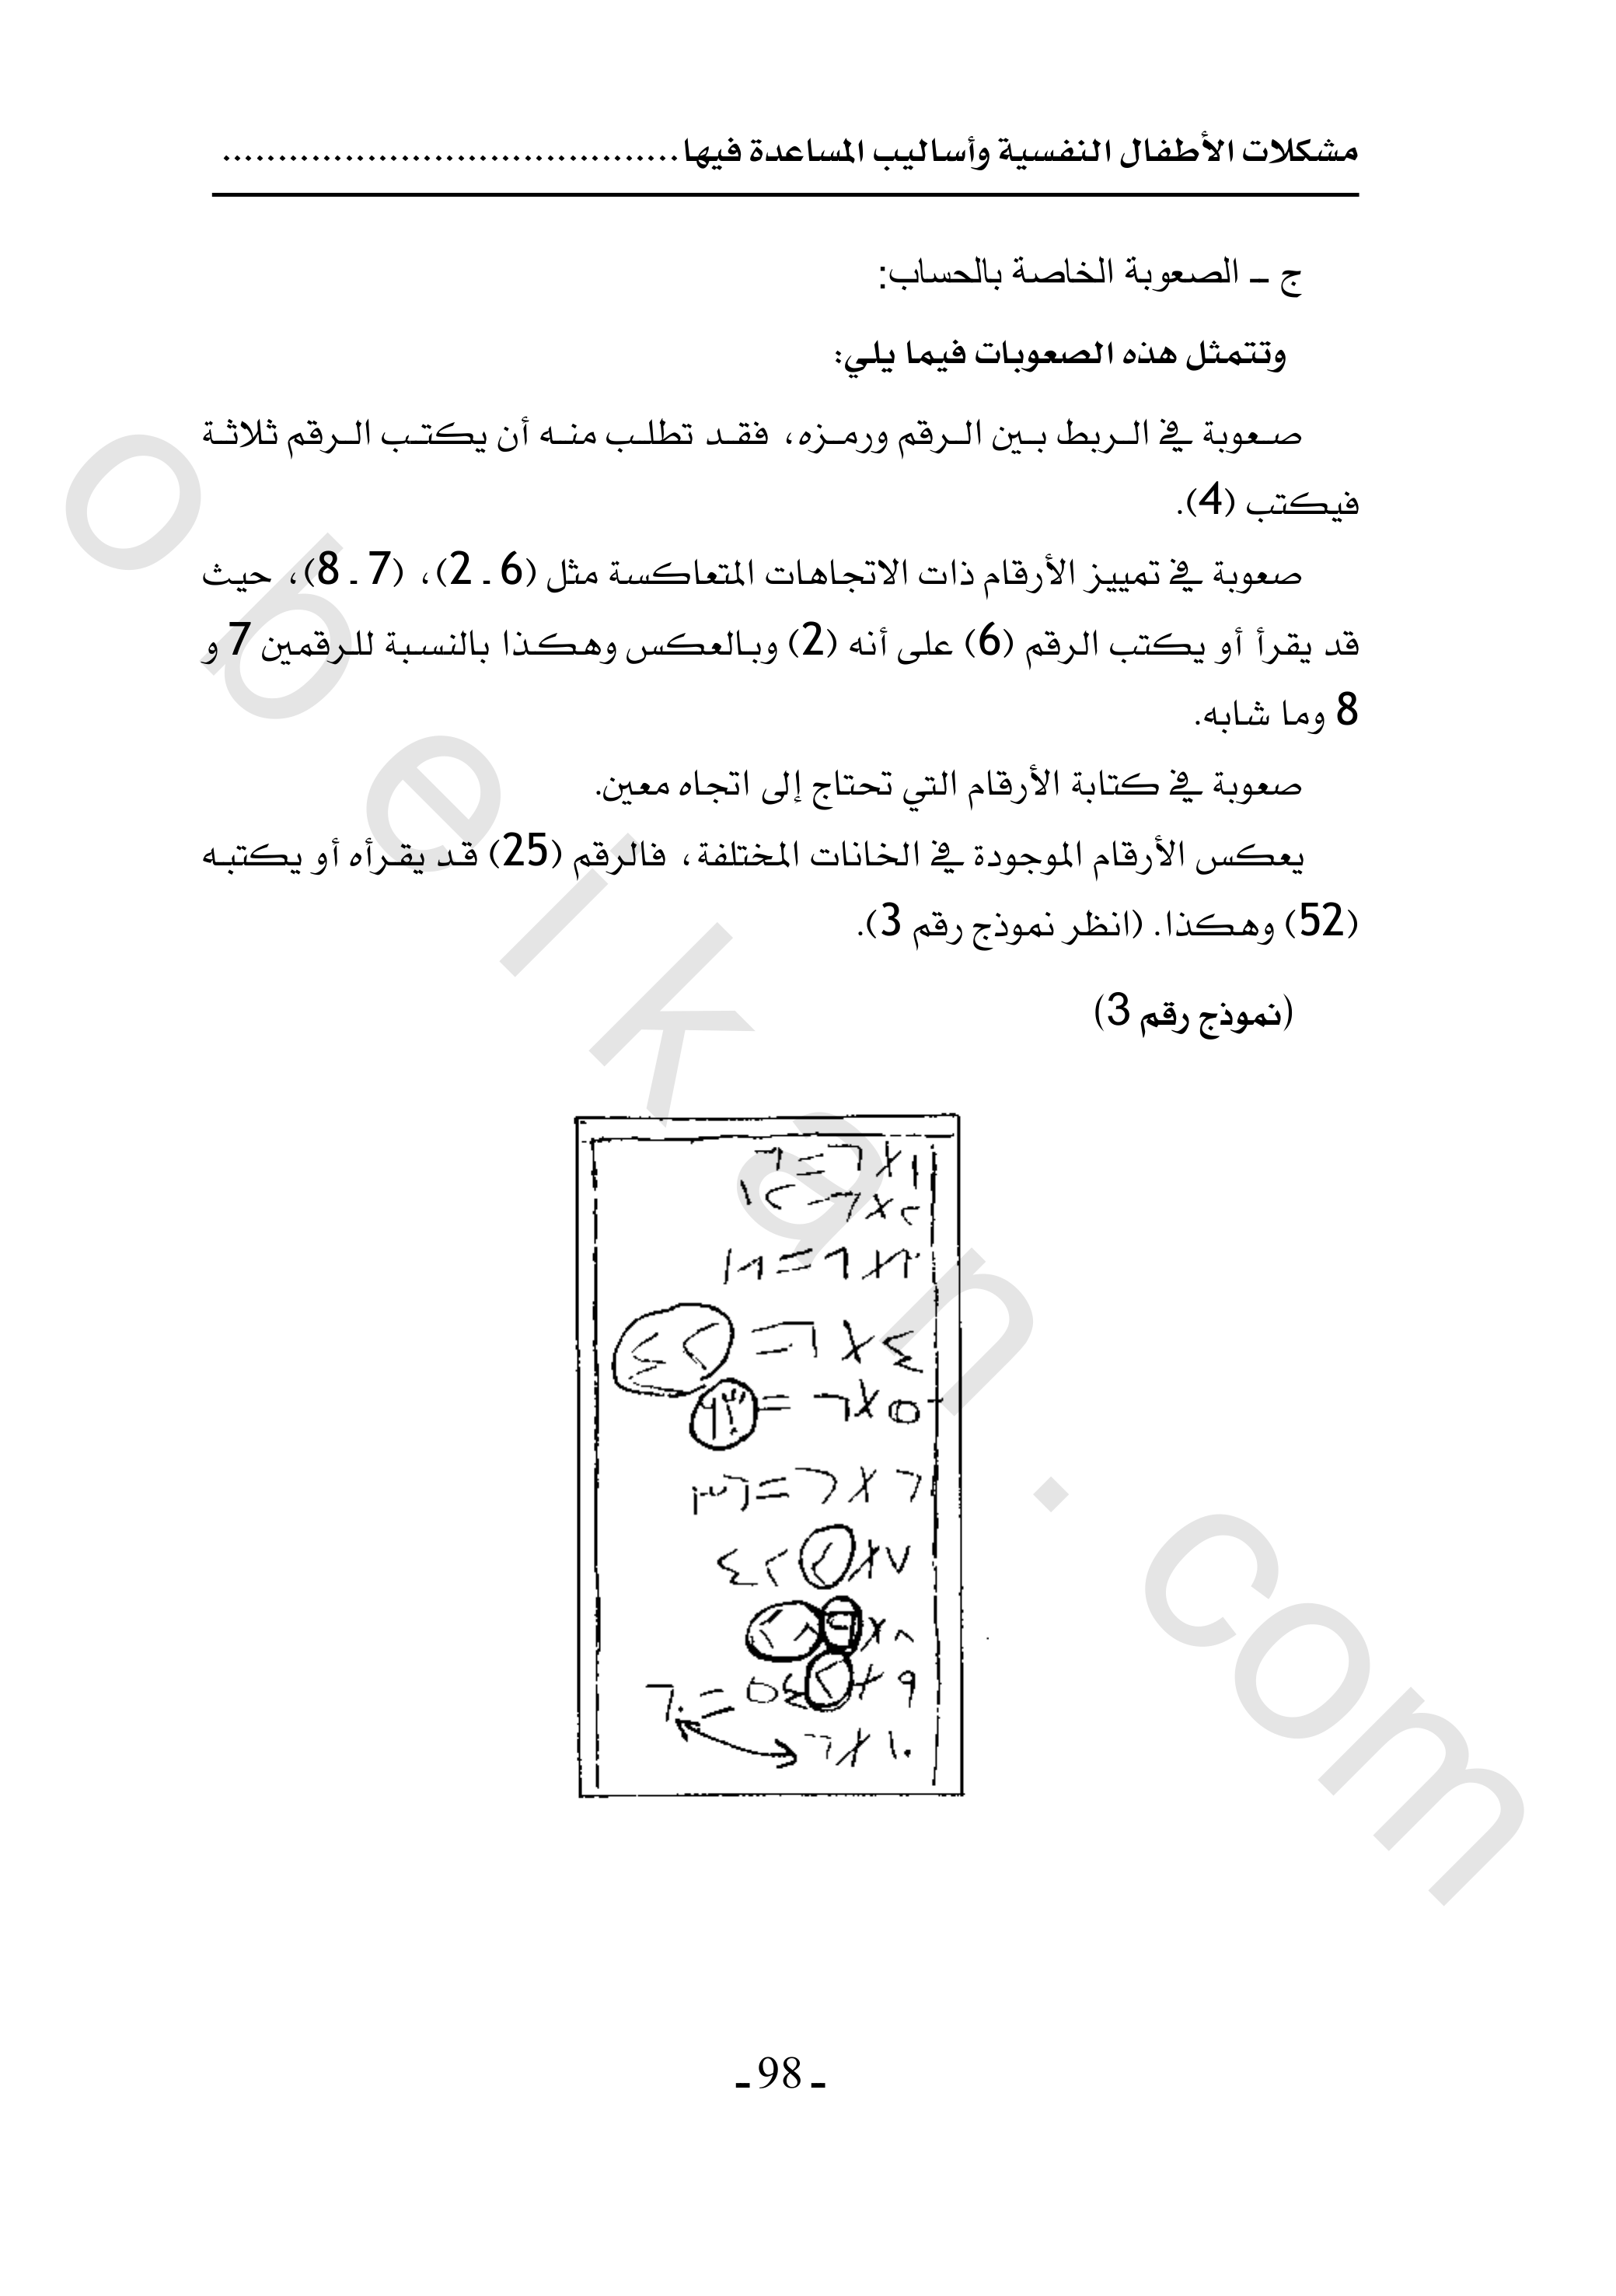 مشكلات الأطفال النفسية وأساليب المساعدة فيها.........................................
ج – الصعوبة الخاصة بالحساب:
وتتمثل هذه الصعوبات فيما يلي:
صعوبة في الربط بين الرقم ورمزه، فقد تطلب منه أن يكتب الرقم ثلاثة
فيكتب (4).
صعوبة في تمييز الأرقام ذات الاتجاهات المتعاكسة مثل (6 ـ 2)، (7 ـ 8)، حيث
قد يقرأ أو يكتب الرقم (6) على أنه (2) وبالعكس وهكذا بالنسبة للرقمين 7 و
8 وما شابه.
صعوبة في كتابة الأرقام التي تحتاج إلى اتجاه معين.
يعكس الأرقام الموجودة في الخانات المختلفة، فالرقم (25) قد يقرأه أو يكتبه
(52) وهكذا. (انظر نموذج رقم 3).
(نموذج رقم 3)
ـ 98 ـ
obeikan.com